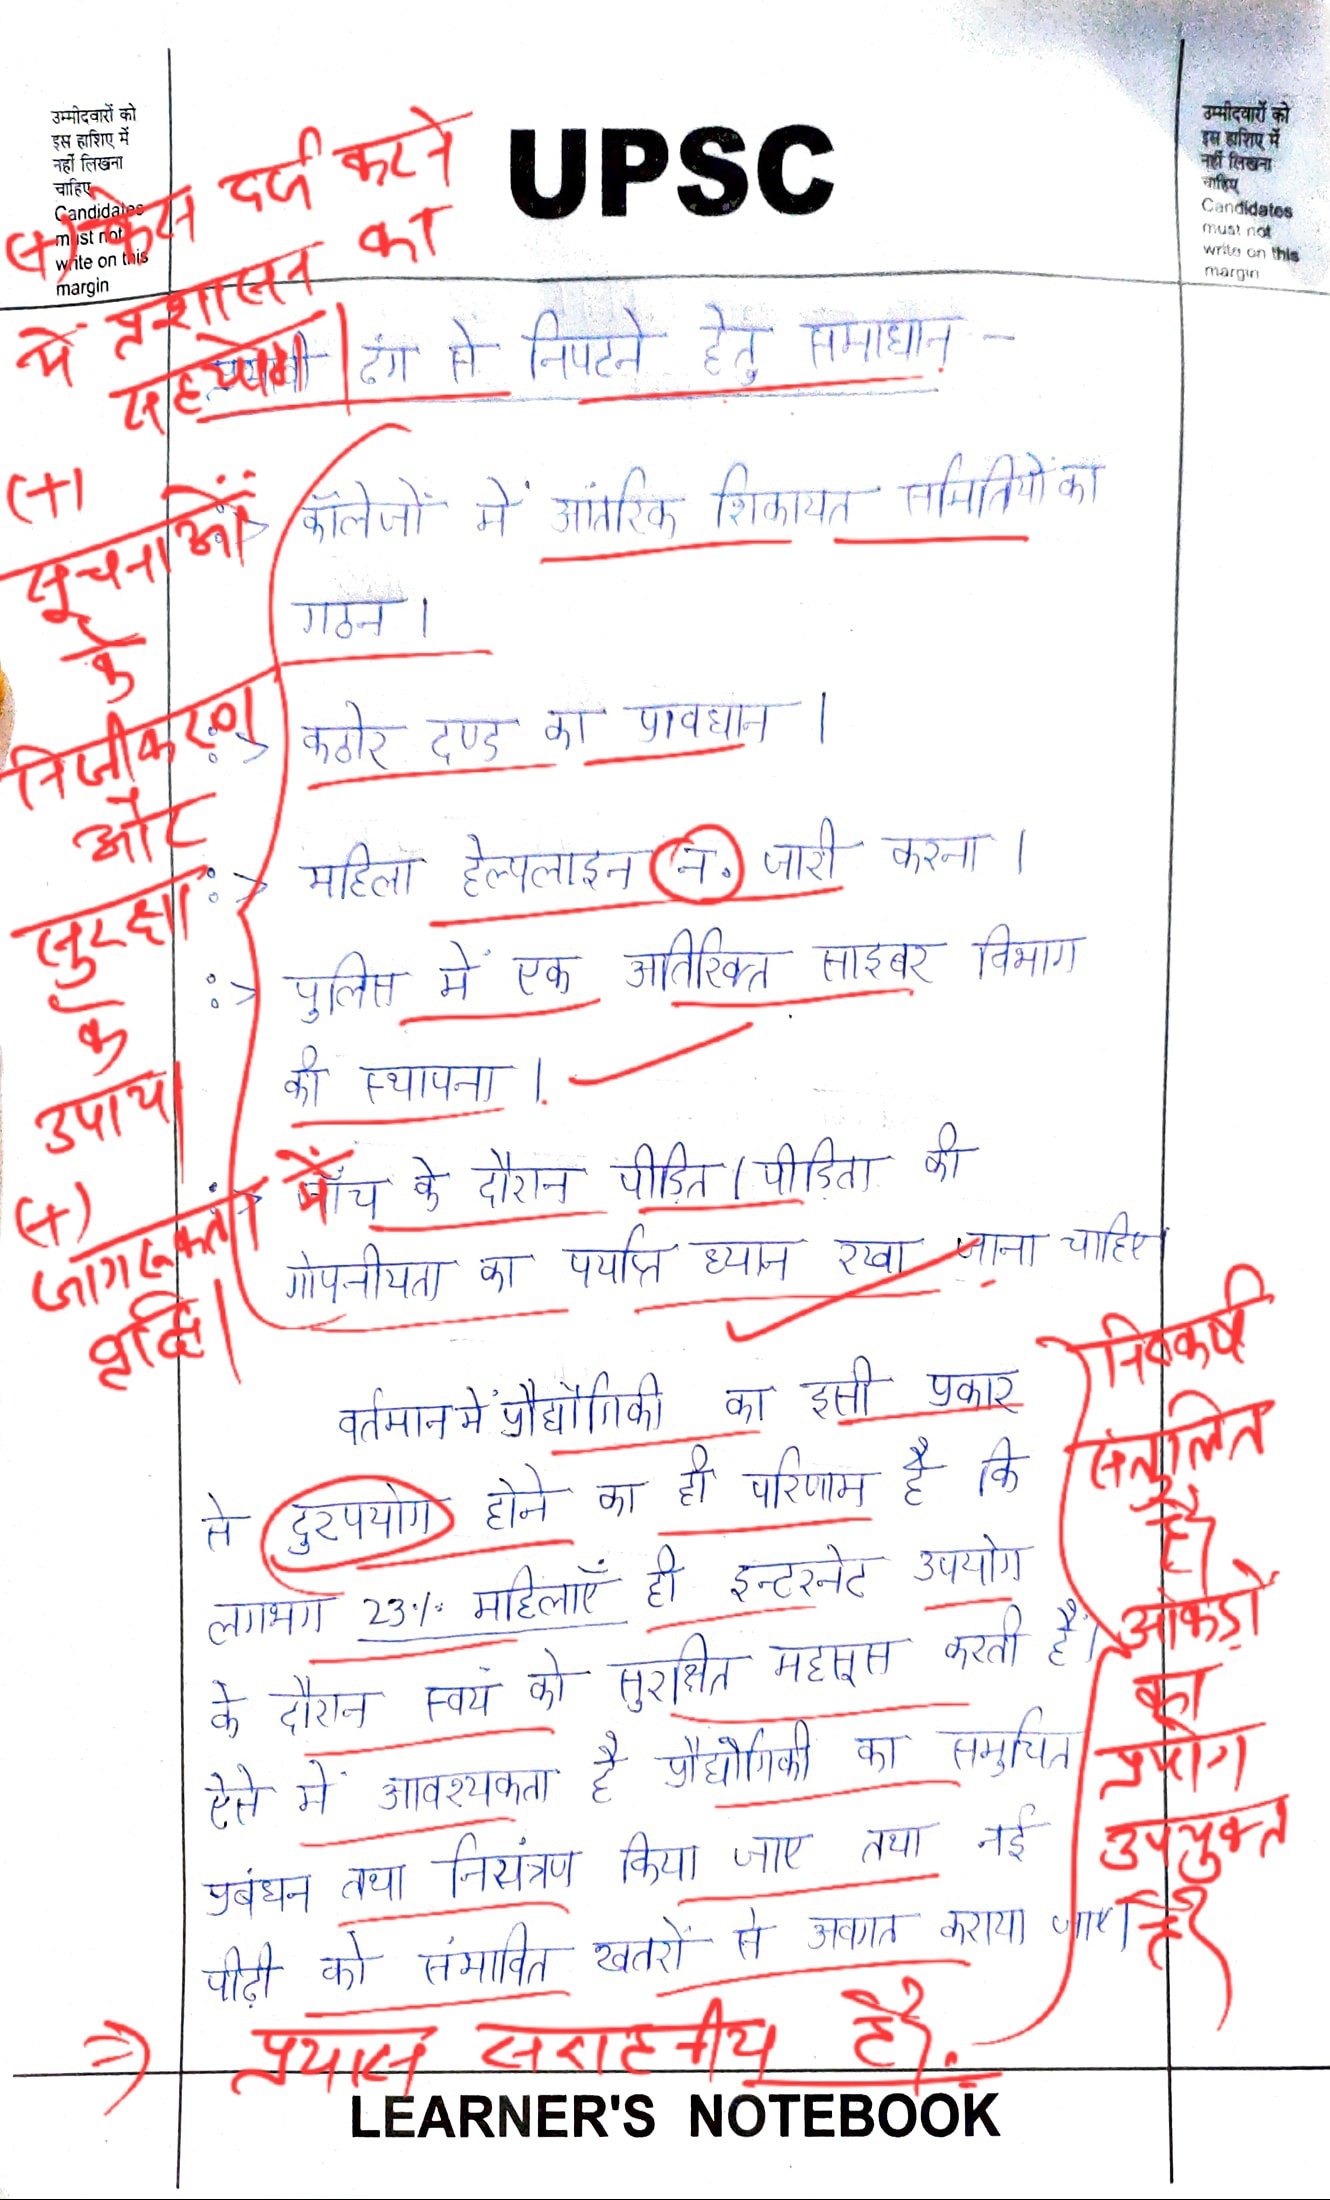 उम्मीदवारों को
इस हाशिए में
नहीं लिखना
चाहिए
Candidates
must not
write on this
margin
UPSC
उम्मीदवारों को
इस हाशिए में
नहीं लिखना
चाहिए
Candidates
must not
write on this
margin
(+) केस दर्ज करने
में प्रशासन का
सहयोग।
ढंग से निपटने हेतु समाधान -
(+)
सूचनाओं
के
निजीकरण
और
सुरक्षा
के
उपाय।
(+)
जागरूकता में
वृद्धि।
कॉलेजों में आंतरिक शिकायत समितियों का
गठन।
कठोर दण्ड का प्रावधान।
महिला हेल्पलाइन न. जारी करना।
पुलिस में एक अतिरिक्त साइबर विभाग
की स्थापना।
जाँच के दौरान पीड़ित / पीड़िता की
गोपनीयता का पर्याप्त ध्यान रखा जाना चाहिए
वर्तमान में प्रौद्यौगिकी का इसी प्रकार
से दुरपयोग होने का ही परिणाम है कि
लगभग 23% महिलाएँ ही इन्टरनेट उपयोग
के दौरान स्वयं को सुरक्षित महसूस करती हैं।
ऐसे में आवश्यकता है प्रौद्यौगिकी का समुचित
प्रबंधन तथा नियंत्रण किया जाए तथा नई
पीढ़ी को संभावित खतरों से अवगत कराया जाए।
निष्कर्ष
संतुलित
है।
आंकड़ों
का
प्रयोग
उपयुक्त
है।
⇒ प्रयास सराहनीय है।
LEARNER'S NOTEBOOK